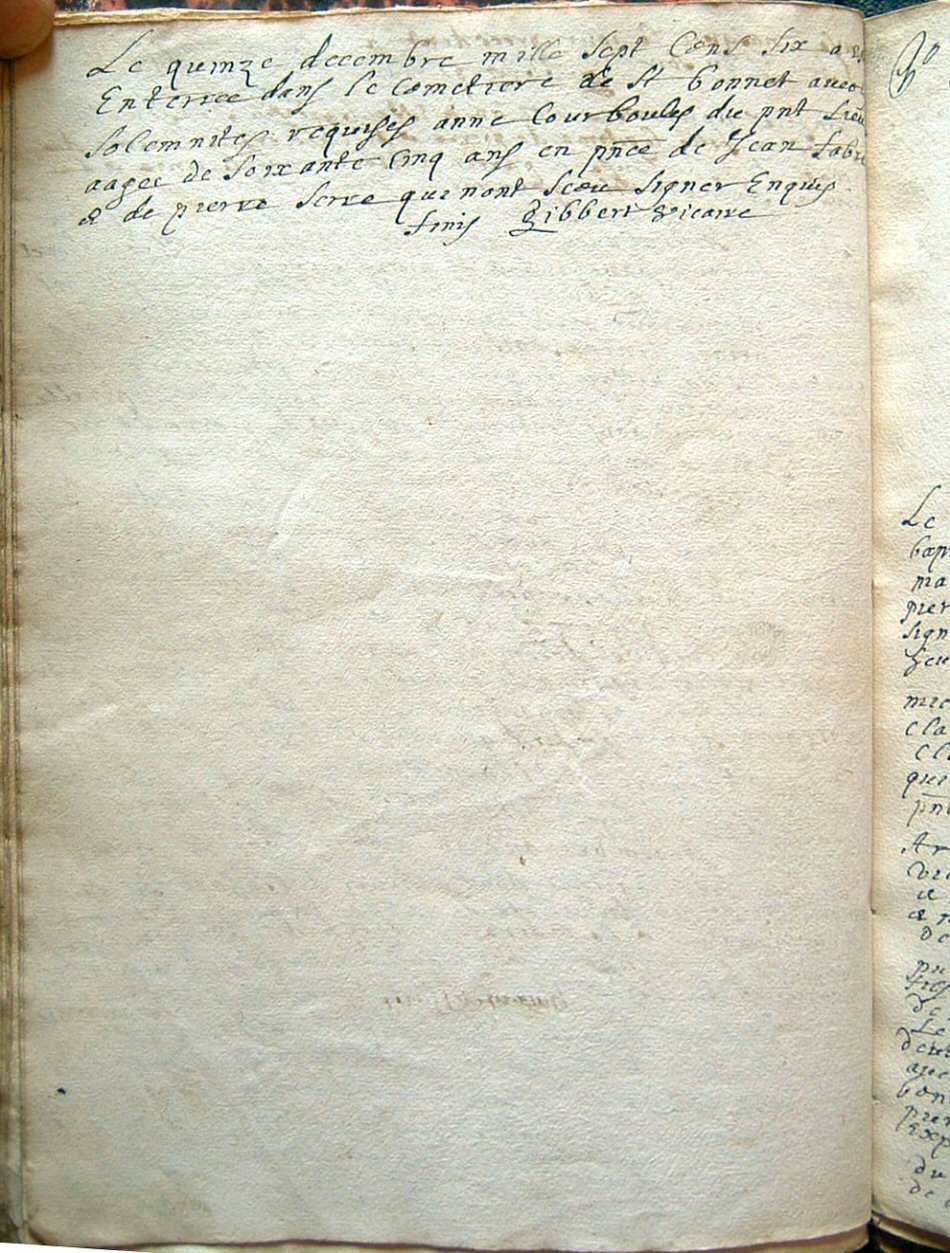 Le quinze decembre mille sept Cens six a
Enterree dans le cemetiere de St bonnet avec
solemnites requises anne Courboules du pnt Lieu
aagee de soixante Cinq ans en pnce de Jean fabre
& de pierre serre qui nont sceu signer Enquis
finis Gibbert vicaire
Le
bap
ma
pier
sign
mic
cla
que
pn
Ar